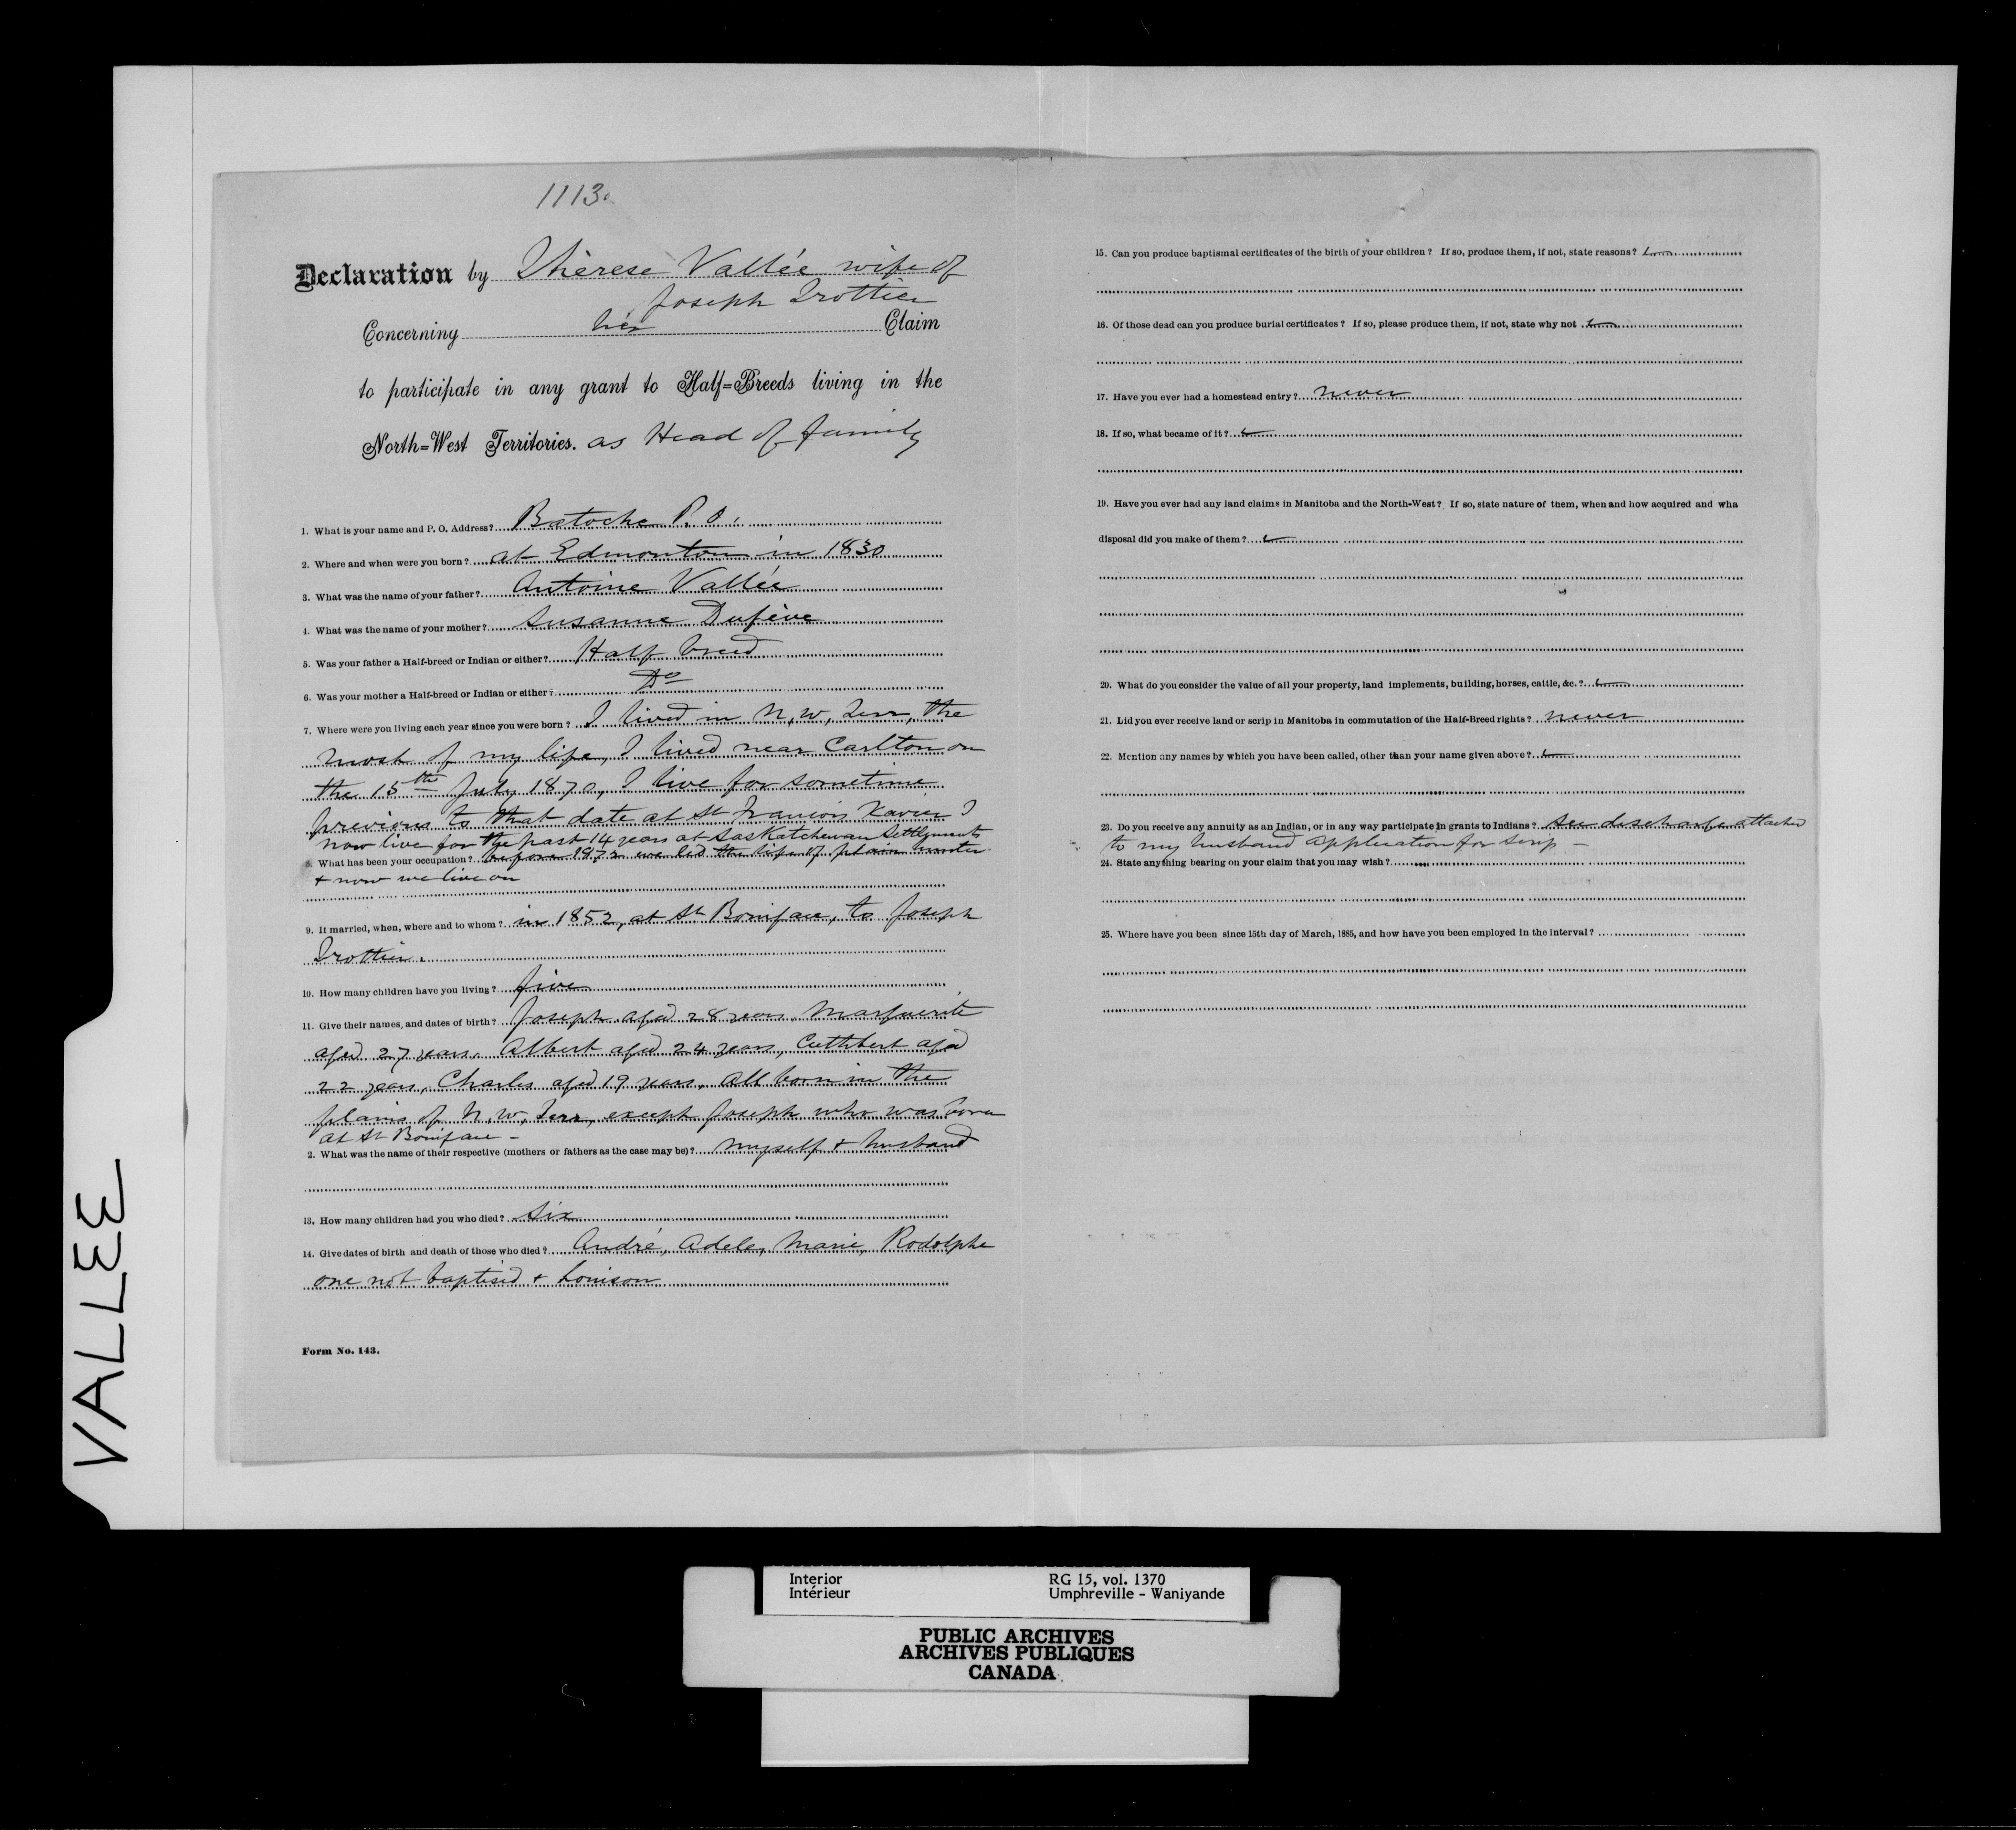 1113.
Declaration by Thérese Vallée wife of
Joseph Trottier
Concerning her Claim
to participate in any grant to Half=Breeds living in the
North=West Territories. as Head of family
1. What is your name and P. O. Address? Batoche P. O.
2. Where and when were you born? at Edmonton in 1830
3. What was the name of your father? Antoine Vallée
4. What was the name of your mother? Susanne
5. Was your father a Half-breed or Indian or either? Half breed
6. Was your mother a Half-breed or Indian or either? Do
7. Where were you living each year since you were born? I lived in N. W. Terr, the
most of my life, I lived near Carlton on
the 15th July 1870, I live for sometime
previous to that date at St Francois Xavier I
now live for the past 14 years at Saskatchewan Settlements
8. What has been your occupation? before 1872 we led the life of plain hunter
& now we live on
9. If married, when, where and to whom? in 1852, at St Boniface, to Joseph
Trottier.
10. How many children have you living? five
11. Give their names, and dates of birth? Joseph aged 28 years, Marguerite
aged 27 years, Albert aged 24 years, Cuthbert aged
22 years, Charles aged 19 years. All born in the
plains of N. W. Terr, except Joseph who was born
at St Boniface -
2. What was the name of their respective (mothers or fathers as the case may be)? myself & husband
13. How many children had you who died? Six
14. Give dates of birth and death of those who died? André, Adele, Marie, Rodolphe
one not baptised & Louison
Form No. 143.
15. Can you produce baptismal certificates of the birth of your children? If so, produce them, if not, state reasons?
16. Of those dead can you produce burial certificates? If so, please produce them, if not, state why not
17. Have you ever had a homestead entry? never
18. If so, what became of it?
19. Have you ever had any land claims in Manitoba and the North-West? If so, state nature of them, when and how acquired and wha
disposal did you make of them?
20. What do you consider the value of all your property, land implements, building, horses, cattle, &c.?
21. Did you ever receive land or scrip in Manitoba in commutation of the Half-Breed rights? never
22. Mention any names by which you have been called, other than your name given above?
23. Do you receive any annuity as an Indian, or in any way participate in grants to Indians? See discharge attached
to my husband application for scrip -
24. State anything bearing on your claim that you may wish?
25. Where have you been since 15th day of March, 1885, and how have you been employed in the interval?
VALLEE
Interior RG 15, vol. 1370
Intérieur Umphreville - Waniyande
PUBLIC ARCHIVES
ARCHIVES PUBLIQUES
CANADA